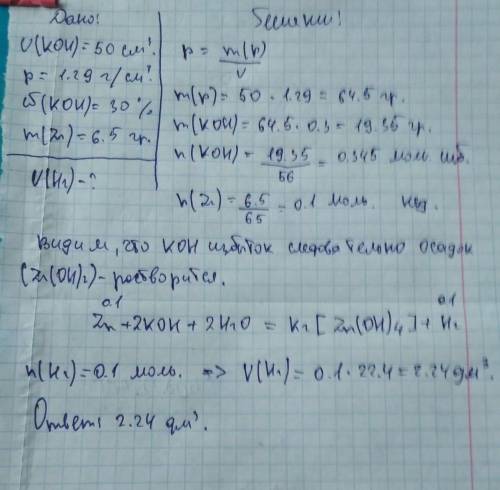 Дано:
V(KOH)=50 см³.
p=1.29 г/см³.
ω(KOH)=30%
m(Zn)=6.5 гр.
V(H₂)-?
Решение:
p = m(p)/V
m(p)=50·1.29=64.5 гр.
m(KOH)=64.5·0.3=19.35 гр.
n(KOH)=19.35/56=0.345 моль. изб.
n(Zn)=6.5/65=0.1 моль. нед.
Видим, что KOH избыток следовательно осадок
(Zn(OH)₂)-растворится.
0.1 0.1
Zn+2KOH+2H₂O = K₂[Zn(OH)₄]+H₂
n(H₂)=0.1 моль. => V(H₂)=0.1·22.4=2.24 дм³.
Ответ: 2.24 дм³.